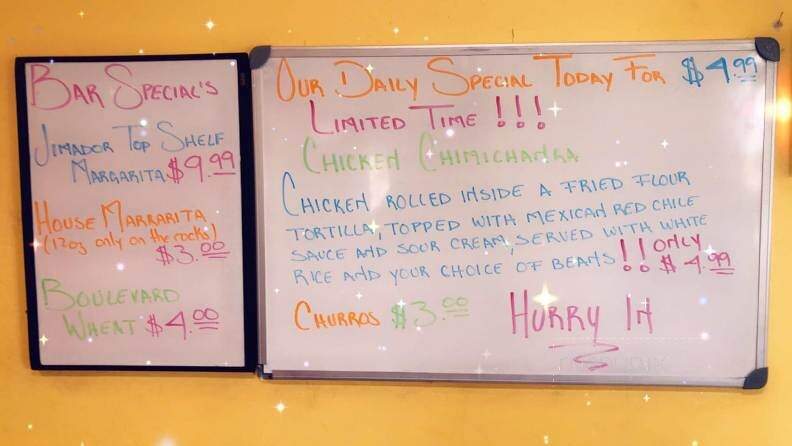 BAR SPECIAL'S
JIMADOR TOP SHELF
MARGARITA $9.99
HOUSE MARRARITA
(12oz only on the rocks)
$3.00
BOULEVARD
WHEAT $4.00
OUR DAILY SPECIAL TODAY FOR $4.99
LIMITED TIME !!!
CHICKEN CHIMICHANGA
CHICKEN ROLLED INSIDE A FRIED FLOUR
TORTILLA, TOPPED WITH MEXICAN RED CHILE
SAUCE AND SOUR CREAM, SERVED WITH WHITE
RICE AND YOUR CHOICE OF BEANS!! only $4.99
CHURROS $3.00
HURRY IN